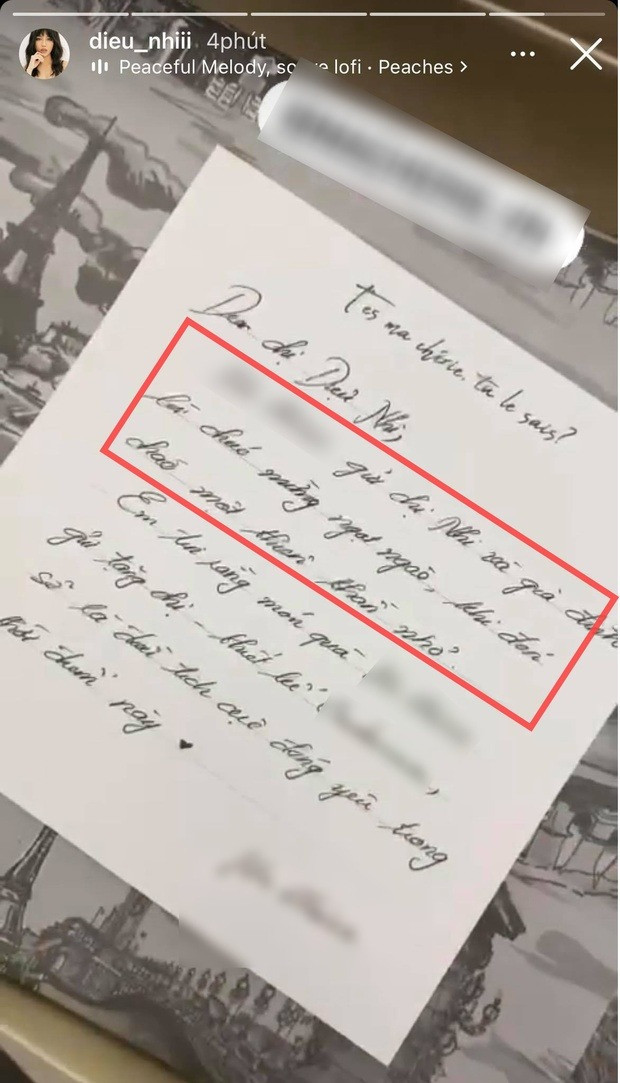 dieu_nhiii 4phút
Peaceful Melody, so e lofi · Peaches >
T'es ma chérie, tu le sais?
Dear chị Diệu Nhi,
gửi chị Nhi và gia đình
lời chúc mừng ngọt ngào, khi đón
chào một thiên thần nhỏ.
Em tin rằng món quà
gửi tặng chị - thiết kế
sẽ là dấu tích cực đáng yêu trong
thời điểm này ♥